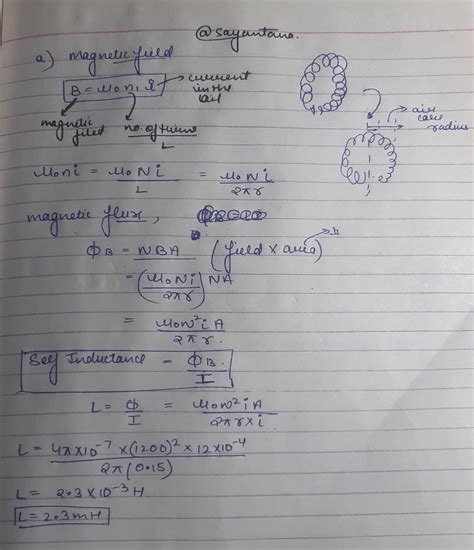 @sayantana.
a) Magnetic field
B = μ₀ni
→ current in the coil
magnetic filed
no. of turns / L
air core radius
μ₀ni = μ₀Ni / L = μ₀Ni / 2πr
magnetic flux,
ΦB = NBA (field × area)
= (μ₀Ni / 2πr) NA
= μ₀N²iA / 2πr.
Self Inductance = ΦB / I
L = Φ / I = μ₀N²iA / 2πr×i
L = 4π×10⁻⁷ × (1200)² × 12×10⁻⁴ / 2π(0.15)
L = 2.3×10⁻³ H
L = 2.3 mH